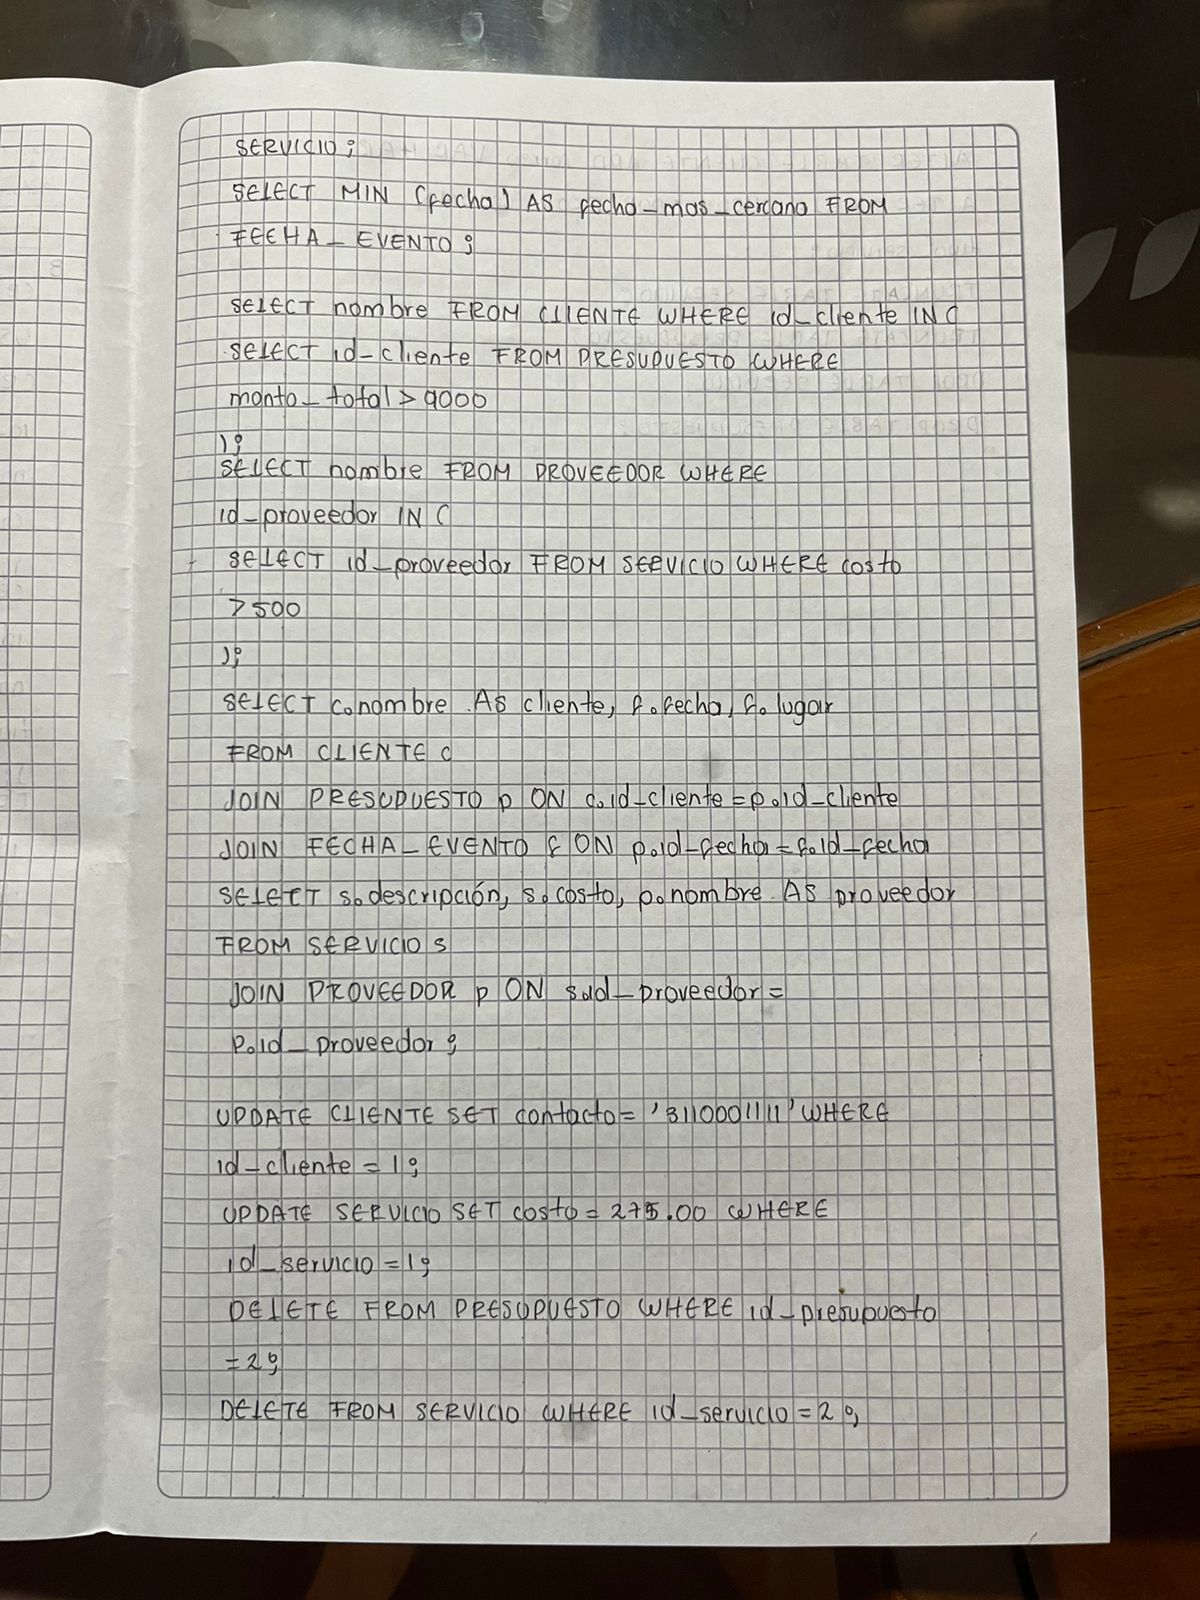 SERVICIO;
SELECT MIN (fecha) AS fecha_mas_cercano FROM
FECHA_EVENTO;
SELECT nombre FROM CLIENTE WHERE id_cliente IN (
SELECT id_cliente FROM PRESUPUESTO WHERE
monto_total > 9000
);
SELECT nombre FROM PROVEEDOR WHERE
id_proveedor IN (
SELECT id_proveedor FROM SERVICIO WHERE costo
> 500
);
SELECT c.nombre AS cliente, f.fecha, f.lugar
FROM CLIENTE C
JOIN PRESUPUESTO p ON c.id_cliente = p.id_cliente
JOIN FECHA_EVENTO f ON p.id_fecha = f.id_fecha
SELECT s.descripción, s.costo, p.nombre AS proveedor
FROM SERVICIO s
JOIN PROVEEDOR p ON s.id_proveedor =
p.id_proveedor;
UPDATE CLIENTE SET contacto = '3110001111' WHERE
id_cliente = 1;
UPDATE SERVICIO SET costo = 275.00 WHERE
id_servicio = 1;
DELETE FROM PRESUPUESTO WHERE id_presupuesto
= 2;
DELETE FROM SERVICIO WHERE id_servicio = 2;